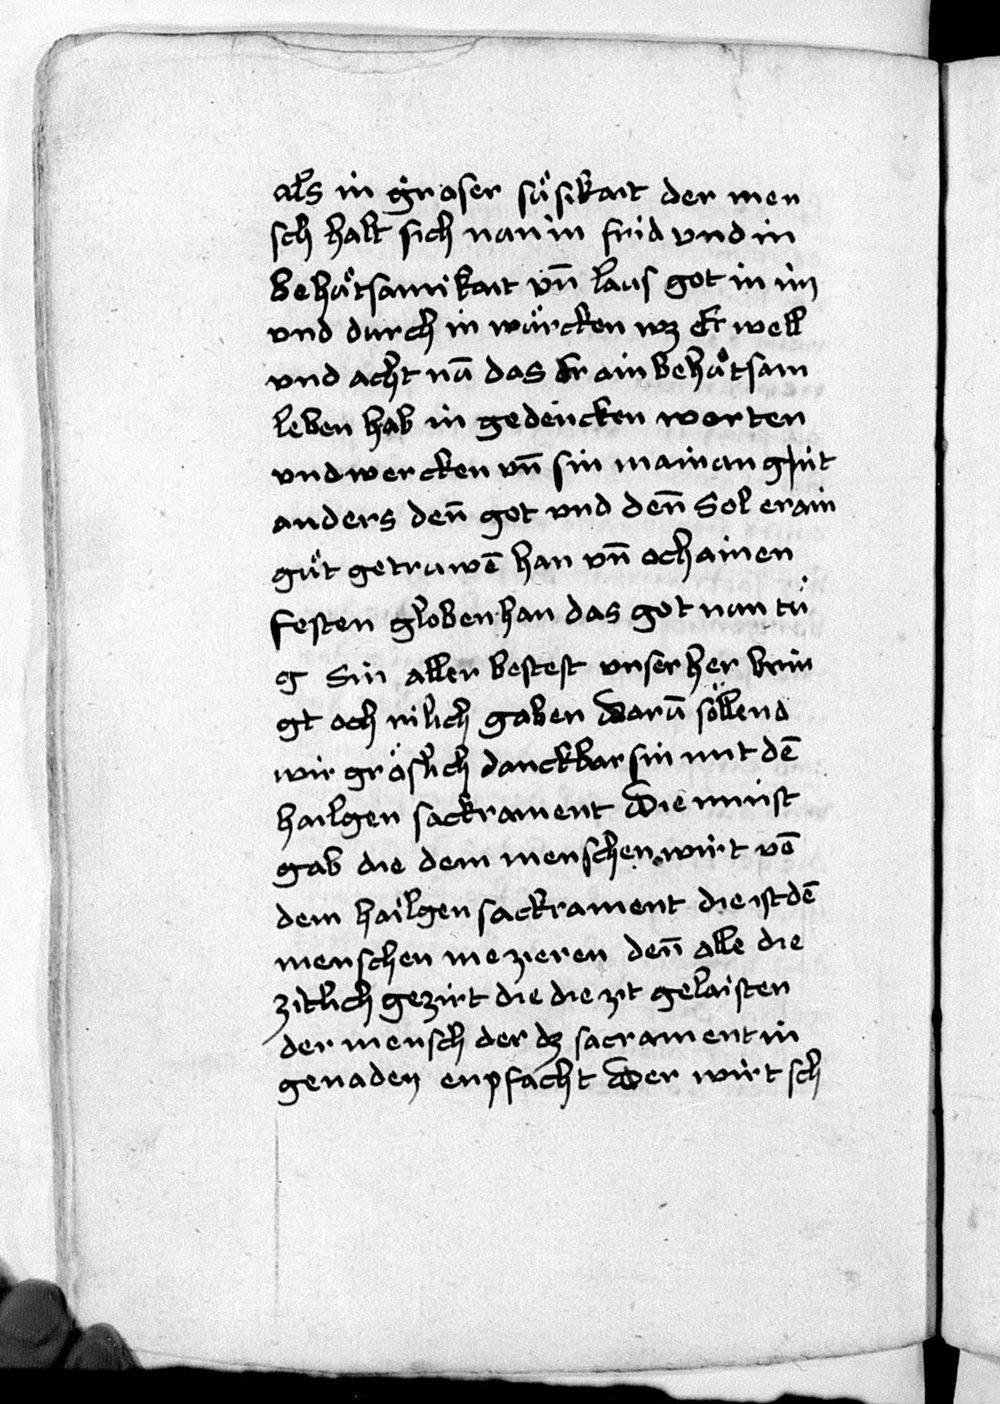 als in groser süsikait der men
sch halt sich nun in frid vnd in
behuͤtsamikait vn̄ laus got in im
vnd durch in wuͤrcken wz Er well
vnd acht nū das Er ain behuͤtsam
leben hab in gedencken worten
vnd wercken vn̄ sin mainan g nüt
anders den̄ got vnd den̄ Sol er ain
guͤt getruwē han vn̄ och ainen
festen globen han das got nun tuͤ
g Sin aller bestest vnser her brin
gt och rilich gaben Darū söllend
wir gröslich danckbar sin mit dē
hailgen sackrament Die minst
gab die dem menschen wirt vō
dem hailgen sackrament die ist dē
menschen me zieren den̄ alle die
zitlich gezirt die die zit gelaisten
der mensch der dz sacrament in
genaden enpfacht Der wirt sch